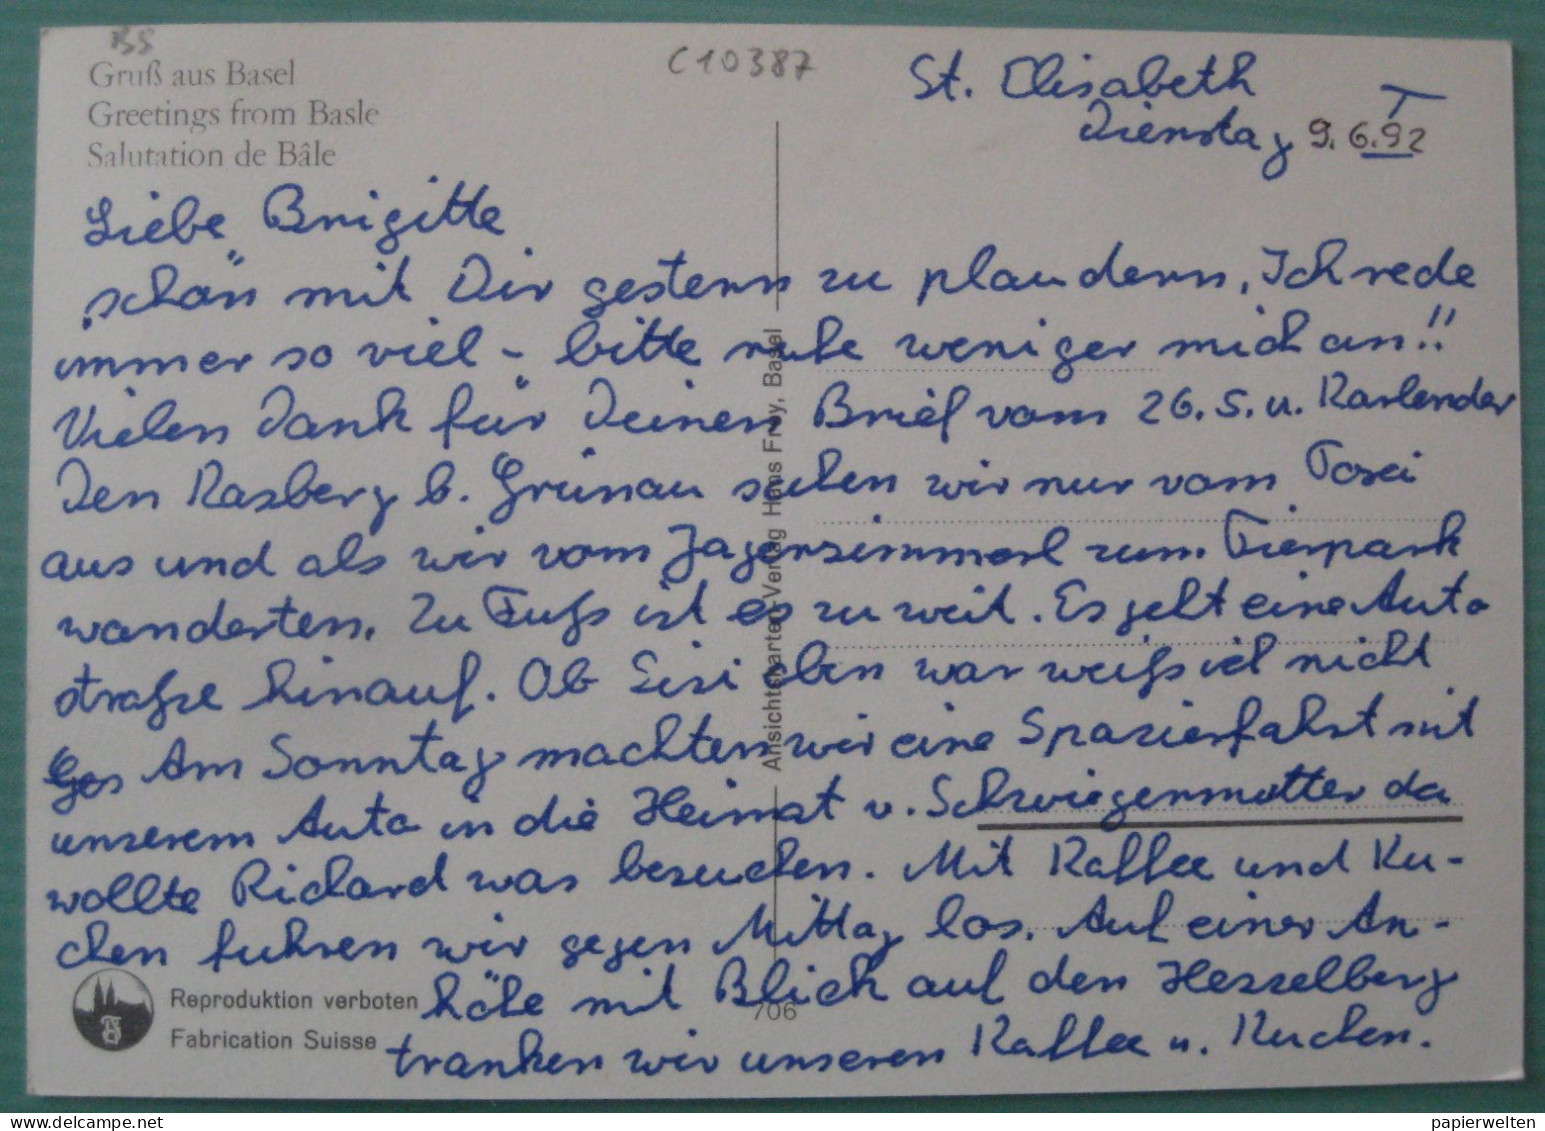 BS
Gruß aus Basel
Greetings from Basle
Salutation de Bâle
C10387
St. Elisabeth
Dienstag 9.6.92
Liebe Brigitte
schön mit Dir gestern zu plaudern, Ich rede
immer so viel - bitte rufe weniger mich an!!
Vielen Dank für Deinen Brief vom 26.5. u. Karlender
Den Kasberg b. Grünau sahen wir nur vom Taxi
aus und als wir vom Jagerzimmerl zum Tierpark
wanderten. Zu Fuß ist es zu weit. Es geht eine Auto
straße hinauf. Ob Sisi oben war weiß ich nicht
Am Sonntag machten wir eine Spazierfahrt mit
unserem Auto in die Heimat v. Schwiegermutter da
wollte Richard was besuchen. Mit Kaffee und Ku-
chen fuhren wir gegen Mittag los. Auf einer An-
höhe mit Blick auf den Hesselberg
tranken wir unseren Kaffee u. Kuchen.
Ansichtskarten-Verlag Hans Frey, Basel
706
Reproduktion verboten
Fabrication Suisse
delcampe.net
papierwelten